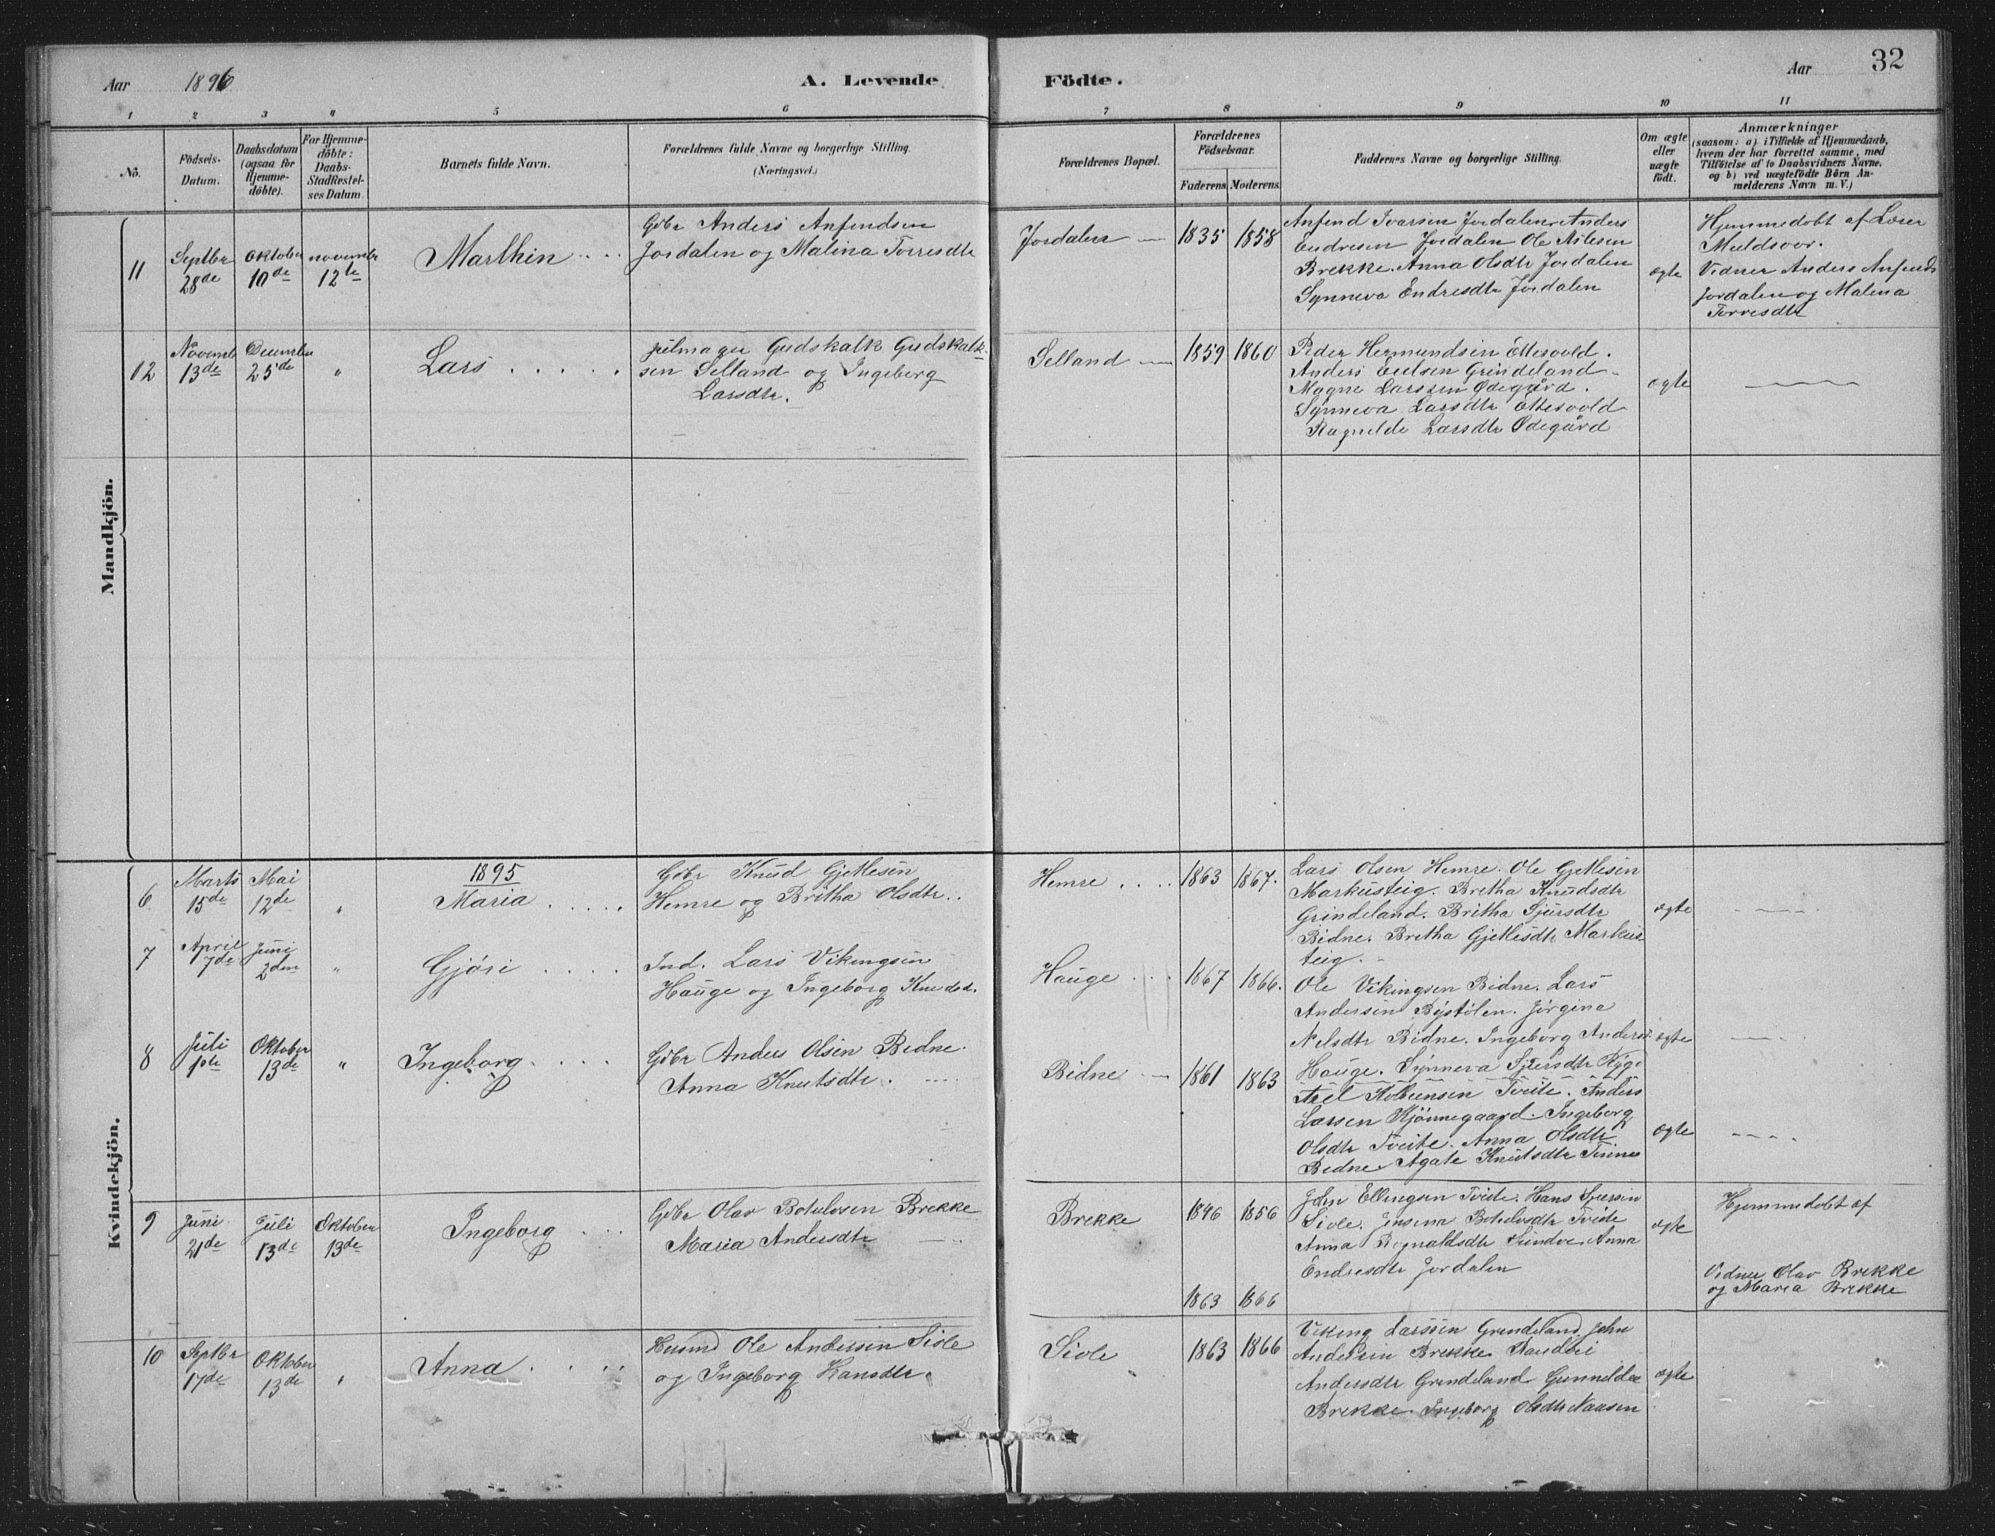 Aar 1896 A. Levende Födte. Aar 32
1 2 3 4 5 6 7 8 9 10 11
No.
Födsels-Datum.
Daabsdatum (ogsaa for Hjemme-döbte).
For Hjemme-döbte: Daabs-Stadfæstel-ses Datum.
Barnets fulde Navn.
Forældrenes fulde Navne og borgerlige Stilling.
(Næringsvei.)
Forældrenes Bopæl.
Forældrenes Födselsaar.
Faderens. Moderens.
Faddernes Navne og borgerlige Stilling.
Om ægte eller uægte födt.
Anmærkninger
(saasom: a) i Tilfælde af Hjemmedaab, hvem der har forrettet samme, med Tilföielse af to Daabsvidners Navne, og b) ved uægtefödte Börn An-melderens Navn m. V.)
Mandkjön.
11 Septbr 28de Oktober 10de november 12te
Marthin
Gdbr Anders Anfindsen
Jordalen og Malina Torresdtr
Jordalen 1835 1858
Anfind Ivarsen Jordalen. Anders
Endresen Jordalen Ole Nilsen
Brekke. Anna Olsdtr Jordalen
Synneva Endresdtr Jordalen
ægte
Hjemmedöbt af Lærer
Vidner Anders Anfinds
Jordalen og Malina
Torresdtr
12 Novemb 13de December 25de "
Lars
Gudskalk Gudskalk-
sen Selland og Ingeborg
Larsdtr.
Selland 1859 1860
Peder Hermundsen Öttesvold.
Anders Grindeland
Magne Larssen Ödegård.
Synneva Larsdtr Öttesvold
Ragnilde Larsdtr Ödegård
ægte
Kvindekjön.
1895
6 Marts 15de Mai 12de "
Maria
Gdbr Knud Gjetlesen
Hemre og Britha Olsdtr.
Hemre 1863 1867.
Lars Olsen Hemre. Ole Gjetlesen
Markusteig. Britha Knudsdtr
Grindeland. Britha Sjursdtr
Bidne. Britha Gjetlesdtr Markus
teig.
ægte
7 April 7de Juni 2den "
Gjöri
Ind. Lars Vikingsen
Hauge og Ingeborg Knudsd.
Hauge 1867 1866.
Ole Vikingsen Bidne. Lars
Andersen Bystölen. Jörgina
Nilsdtr Bidne. Ingeborg Andersd
Hauge. Synneva Sjursdtr
ægte
8 Juli 1ste Oktober 13de "
Ingeborg
Gdbr Anders Olsen Bidne.
Anna Knutsdtr.
Bidne 1861 1863
Axel Kolbensen Tveite. Anders
Larsen Kjönnegaard. Ingeborg
Olsdtr Tveite. Anna Olsdtr
Bidne. Agate Knutsdtr
ægte
9 Juni 21de Juli 13de Oktober 13de
Ingeborg
Gdbr Olav Botulvsen Brekke
Maria Andersdtr
Brekke 1846 1856
John Ellingsen Tveite. Hans Sjursen
Sivle. Botulvsdtr Tveite
Anna Rognaldsdtr Anna
Endresdtr Jordalen
ægte
Hjemmedöbt af
Vidner Olav Brekke
og Maria Brekke
1863 1866
10 Septbr 17de Oktober 13de "
Anna
Husmd Ole Andersen Sivle
og Ingeborg Hansdtr.
Sivle 1863 1866
Viking Larssen Grindeland. John
Andersen Brekke.
Andersdtr Grindeland Gunnilde
Brekke Ingeborg Olsdtr Naasen
ægte